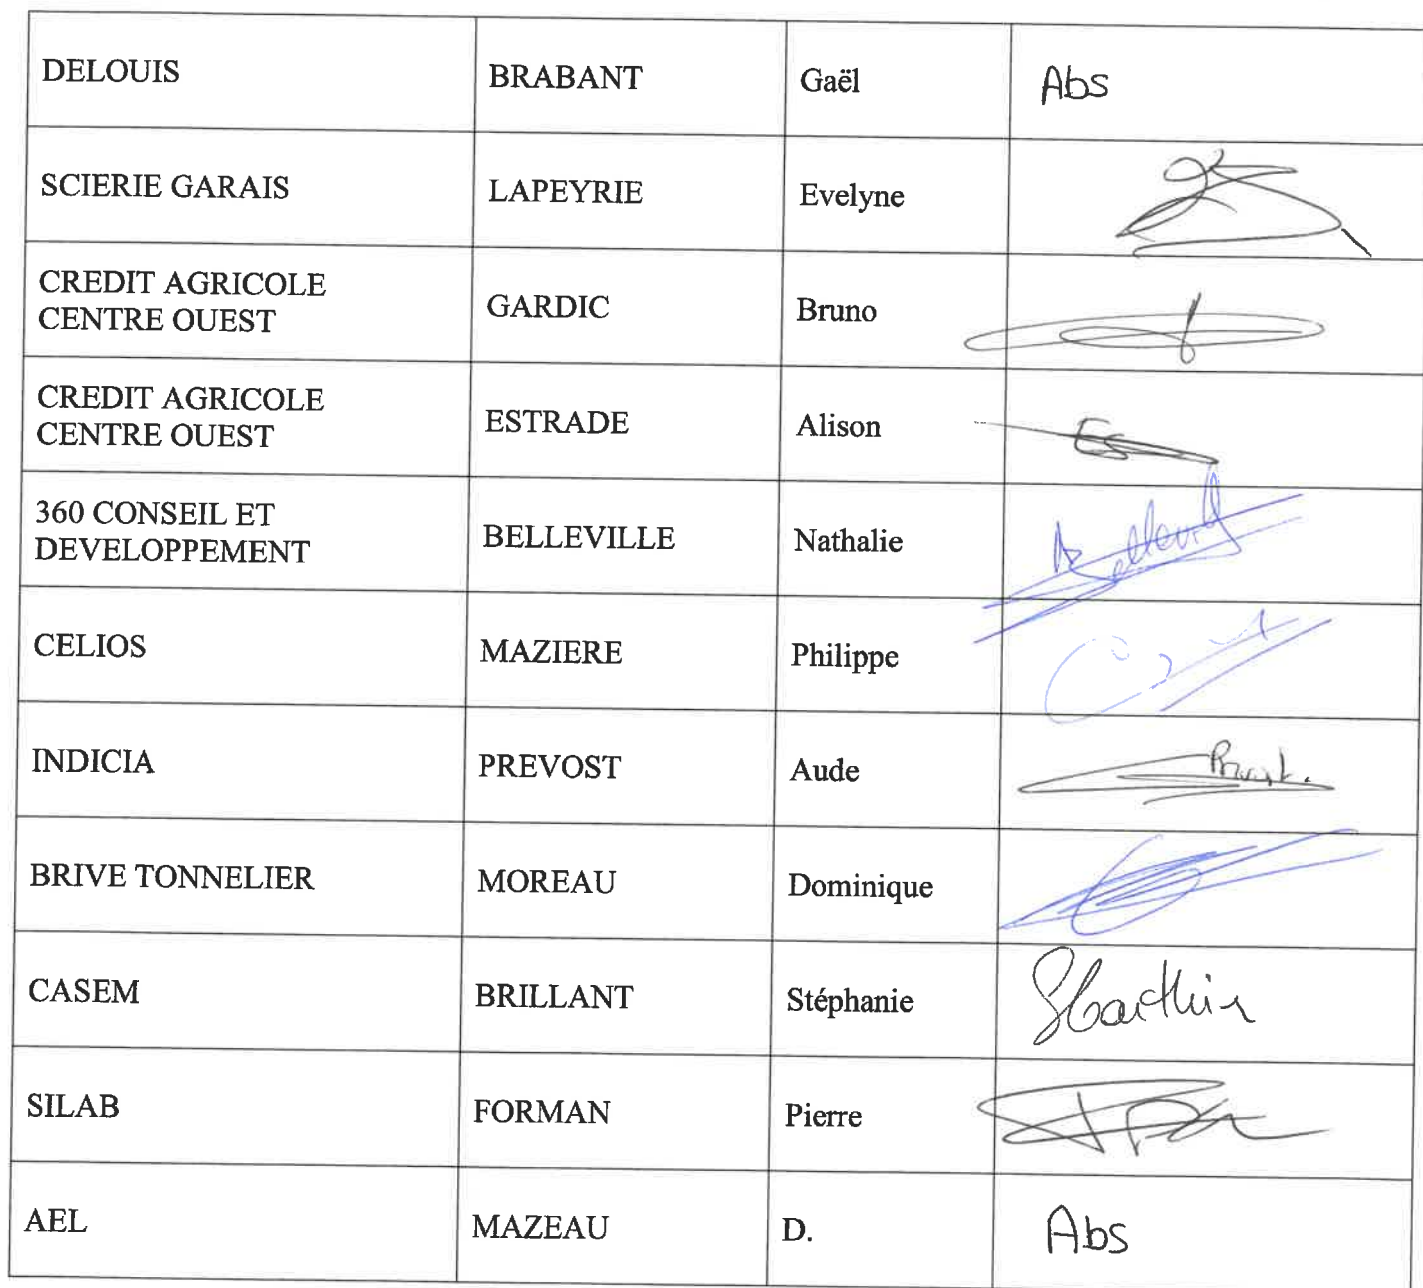 DELOUIS BRABANT Gaël Abs
SCIERIE GARAIS LAPEYRIE Evelyne
CREDIT AGRICOLE
CENTRE OUEST GARDIC Bruno
CREDIT AGRICOLE
CENTRE OUEST ESTRADE Alison
360 CONSEIL ET
DEVELOPPEMENT BELLEVILLE Nathalie
CELIOS MAZIERE Philippe
INDICIA PREVOST Aude
BRIVE TONNELIER MOREAU Dominique
CASEM BRILLANT Stéphanie
SILAB FORMAN Pierre
AEL MAZEAU D. Abs